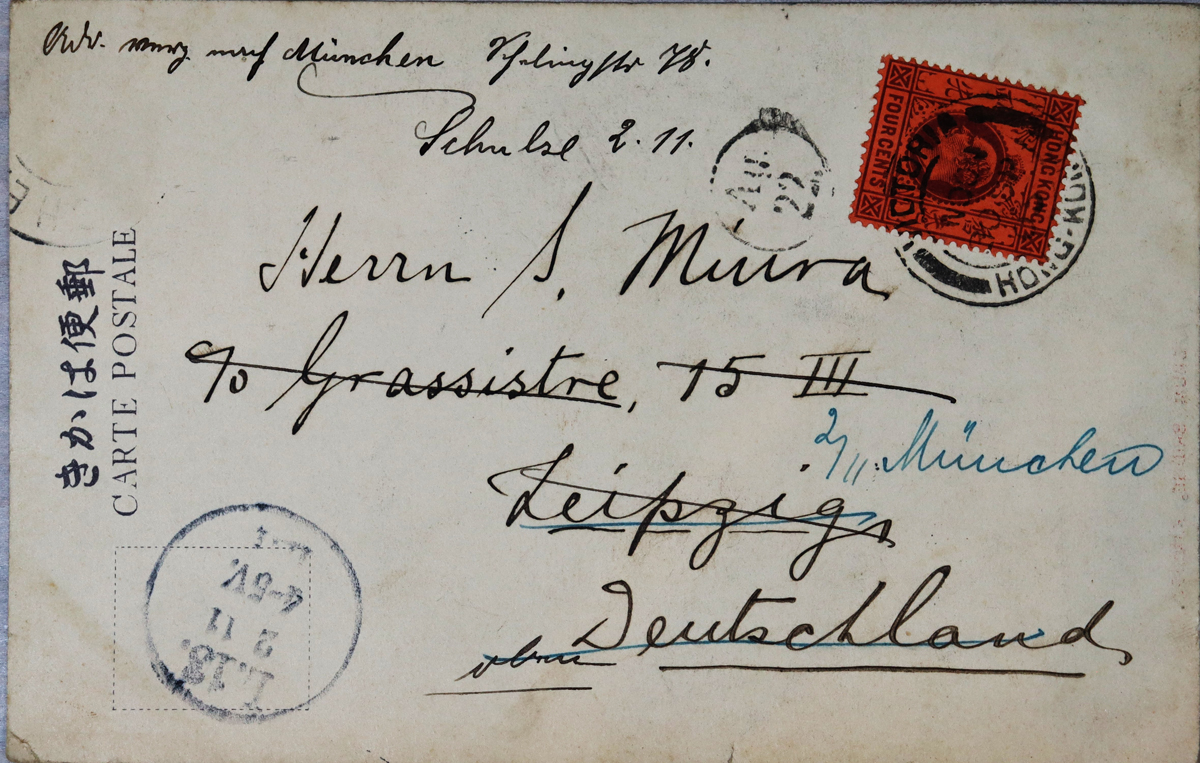 Adr. verz. nach München Schellingstr 78.
Schulze 2.11.
FOUR CENTS
HONG KONG
VICTORIA
HONG-KONG
AU
22
Herrn S. Miura
c/o Grassistre, 15 III
2/11 München
Leipzig,
Deutschland,
oben
郵便はかき
CARTE POSTALE
4-5V.
2 11
L.13.